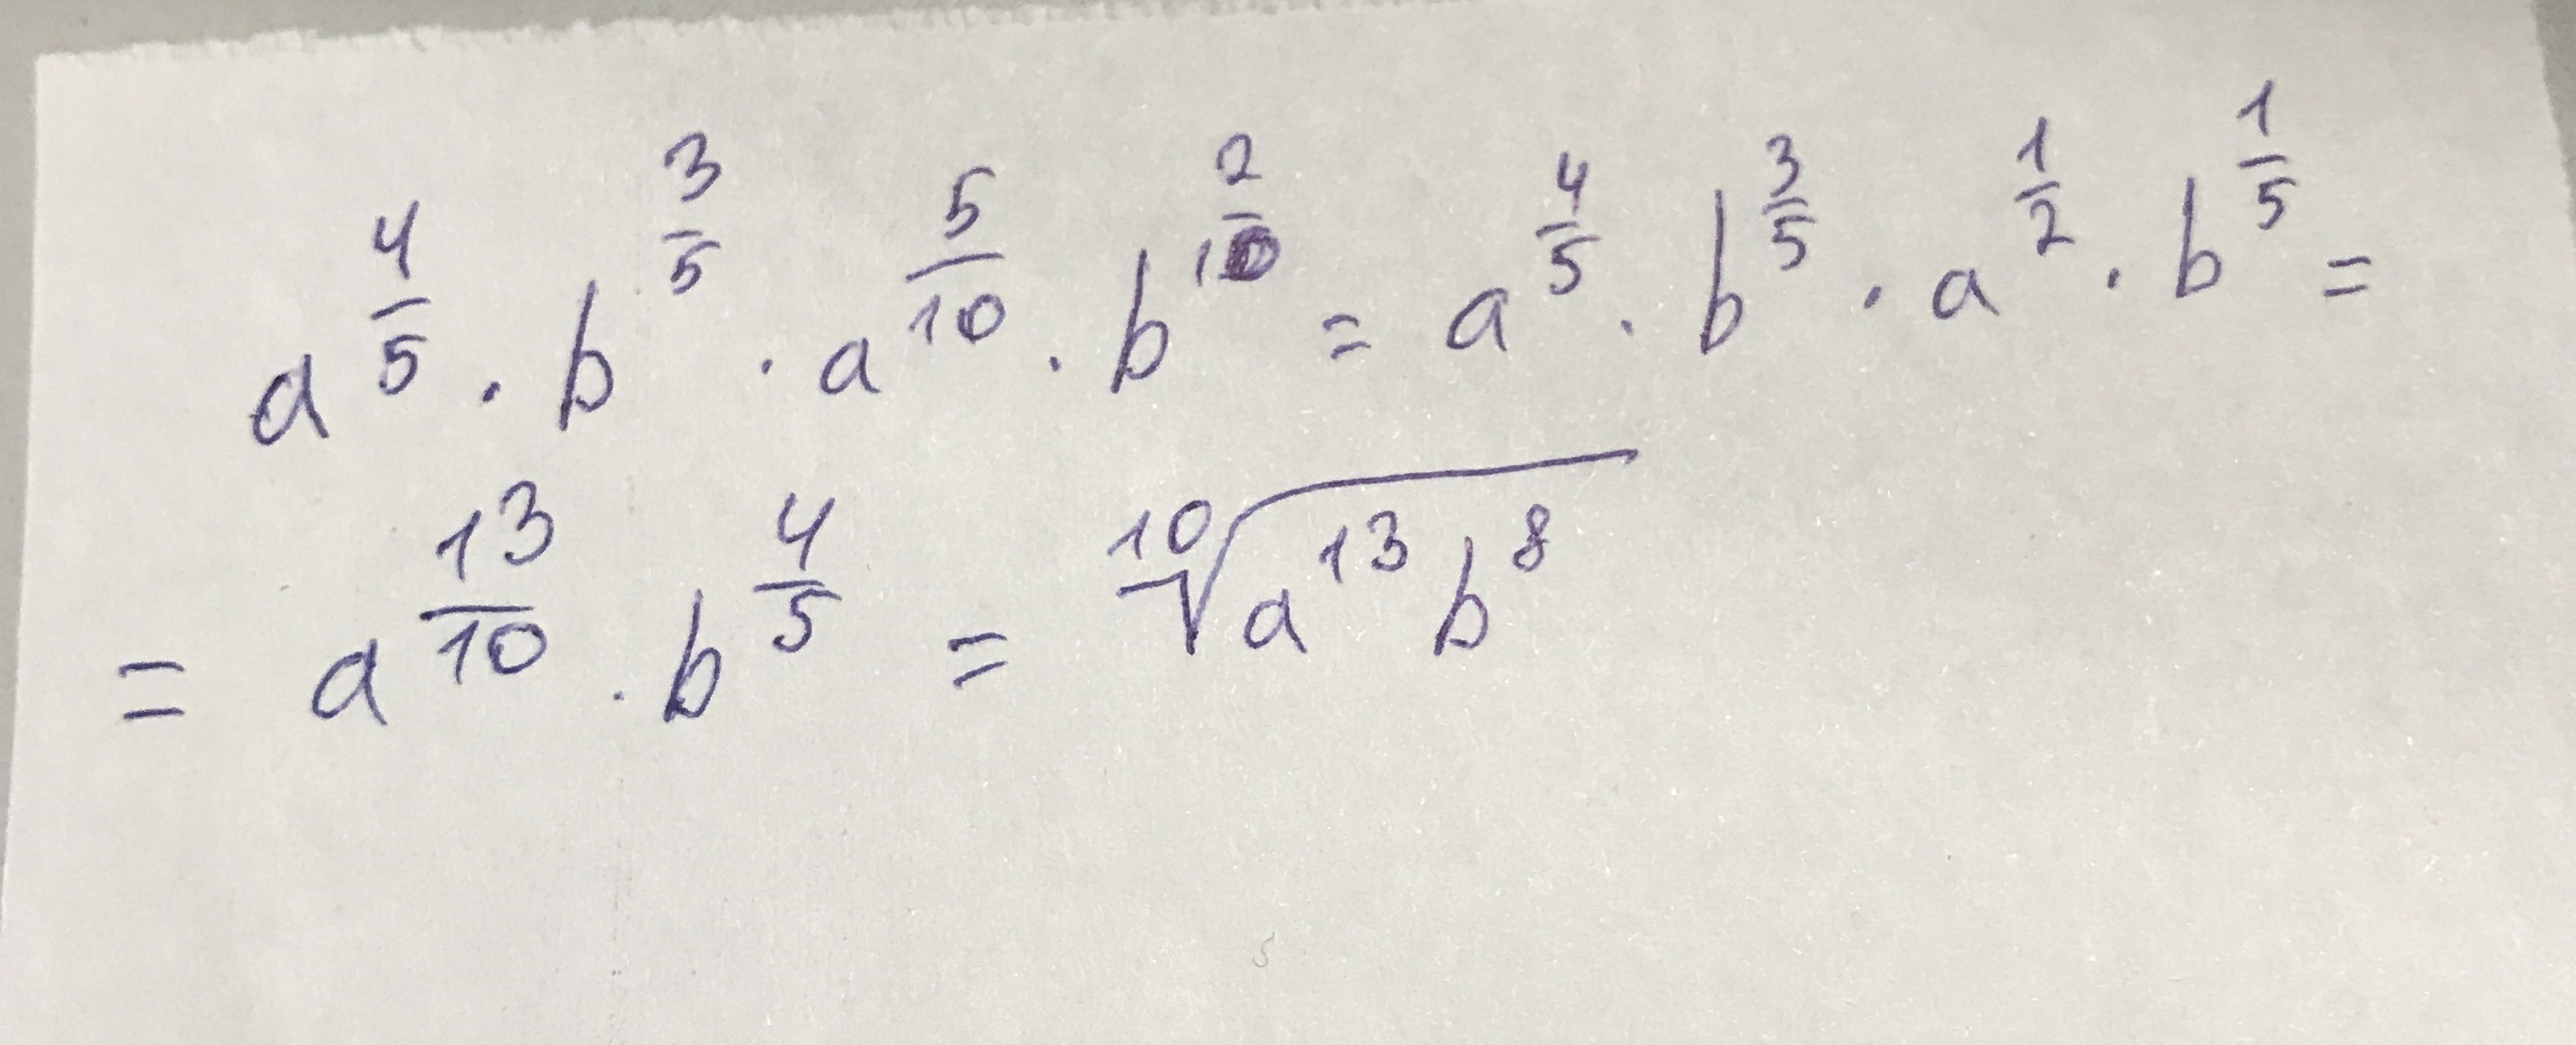 a^{\frac{4}{5}} \cdot b^{\frac{3}{5}} \cdot a^{\frac{5}{10}} \cdot b^{\frac{2}{10}} = a^{\frac{4}{5}} \cdot b^{\frac{3}{5}} \cdot a^{\frac{1}{2}} \cdot b^{\frac{1}{5}} =
= a^{\frac{13}{10}} \cdot b^{\frac{4}{5}} = \sqrt[10]{a^{13} b^{8}}